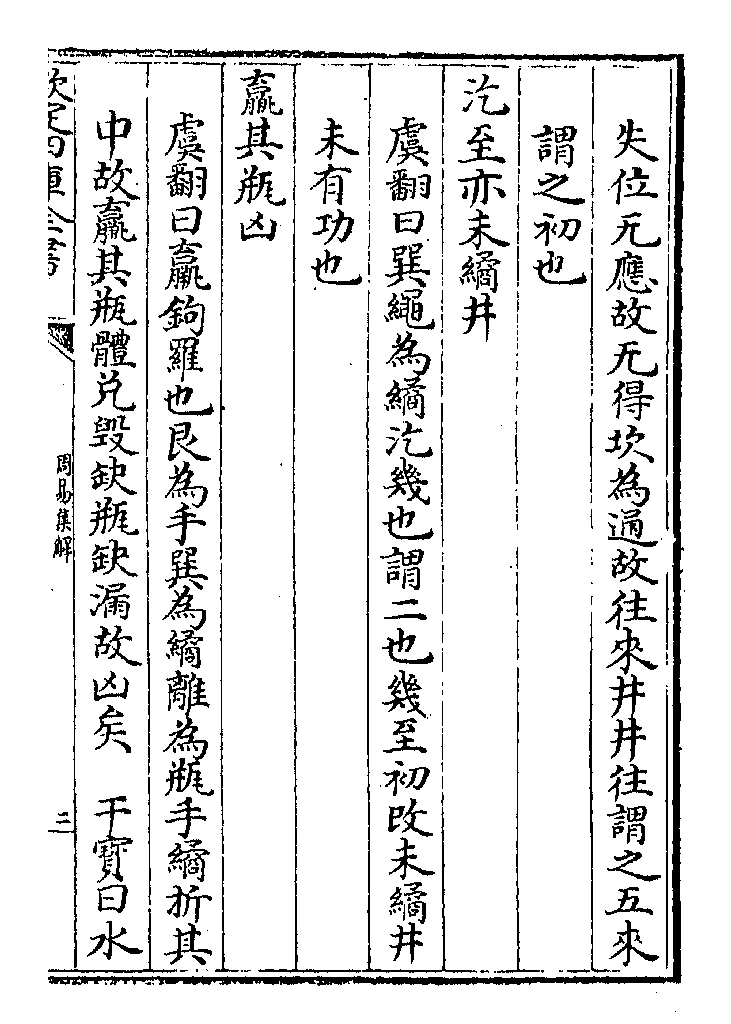 失位旡應故旡得坎為通故往來井井往謂之五來
謂之初也
汔至亦未繘井
虞翻曰巽繩為繘汔幾也謂二也幾至初改未繘井
未有功也
羸其瓶凶
虞翻曰羸鉤羅也艮為手巽為繘離為瓶手繘折其
中故羸其瓶體兌毀缺瓶缺漏故凶矣　干寶曰水
欽定四庫全書
周易集解
二